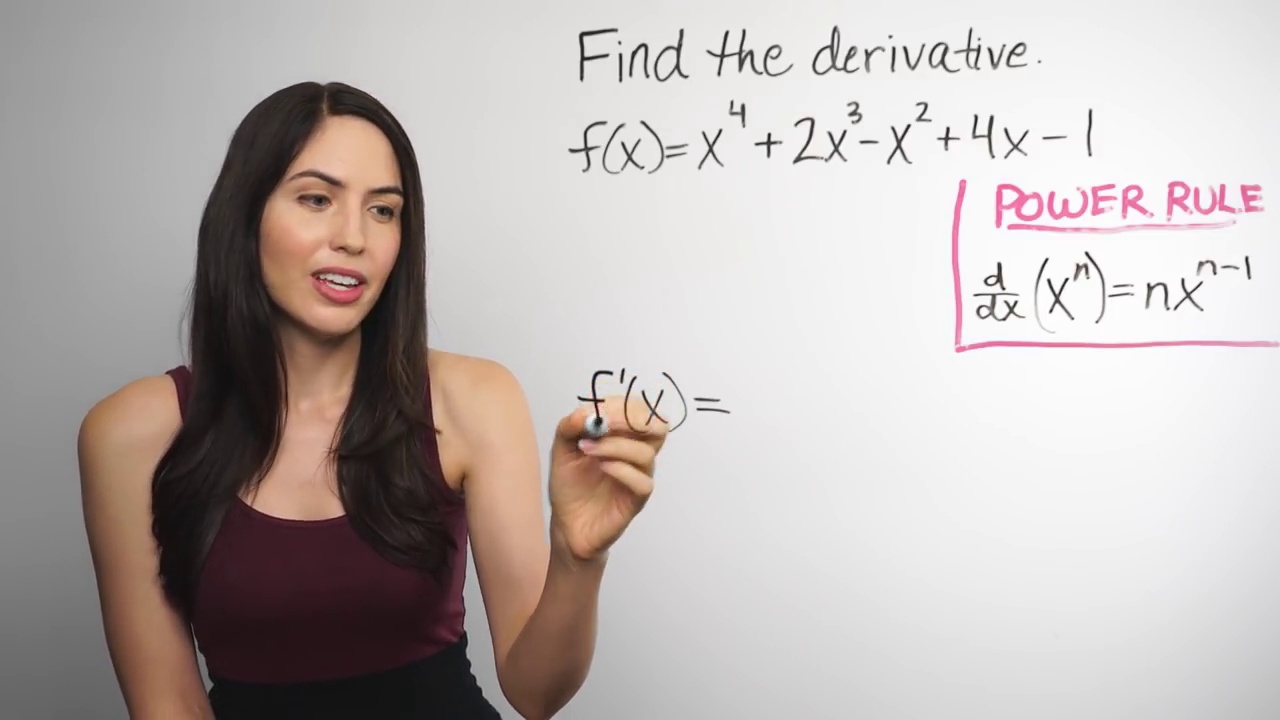 Find the derivative.
f(x)=x⁴+2x³-x²+4x-1
POWER RULE
d/dx (xⁿ)=nxⁿ⁻¹
f'(x)=